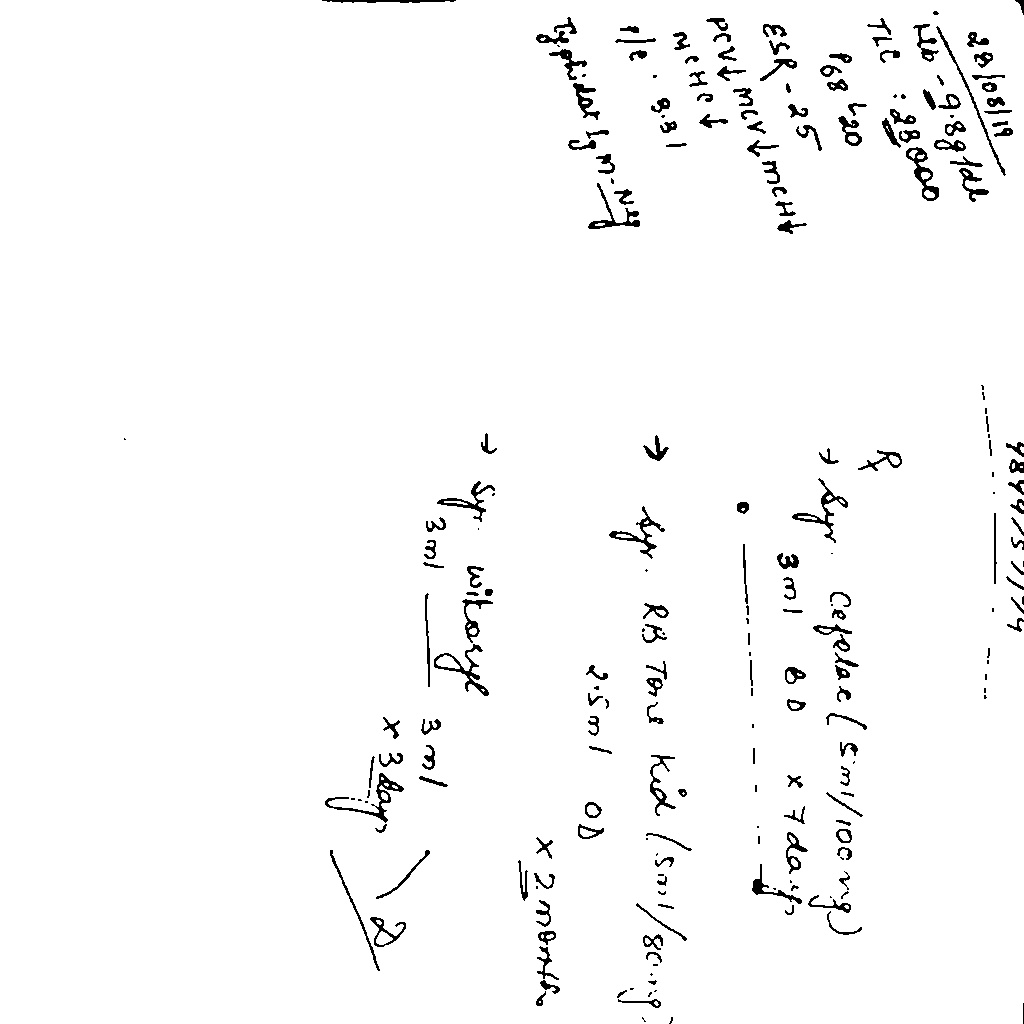 28/08/19
Hb - 9.8g/dl
TLC : 28000
P68 L20
ESR - 25
PCV↓ MCV↓ MCH↓
MCHC↓
P/C . 3.31
Typhidot IgM - Neg
Rx
→ Syr. Cefolac (5ml/100mg)
3ml BD x 7days
→ Syr. RB Tone Kid (5ml/80mg)
2.5ml OD
x 2 months
→ Syr. 
3ml — 3ml
x 3days